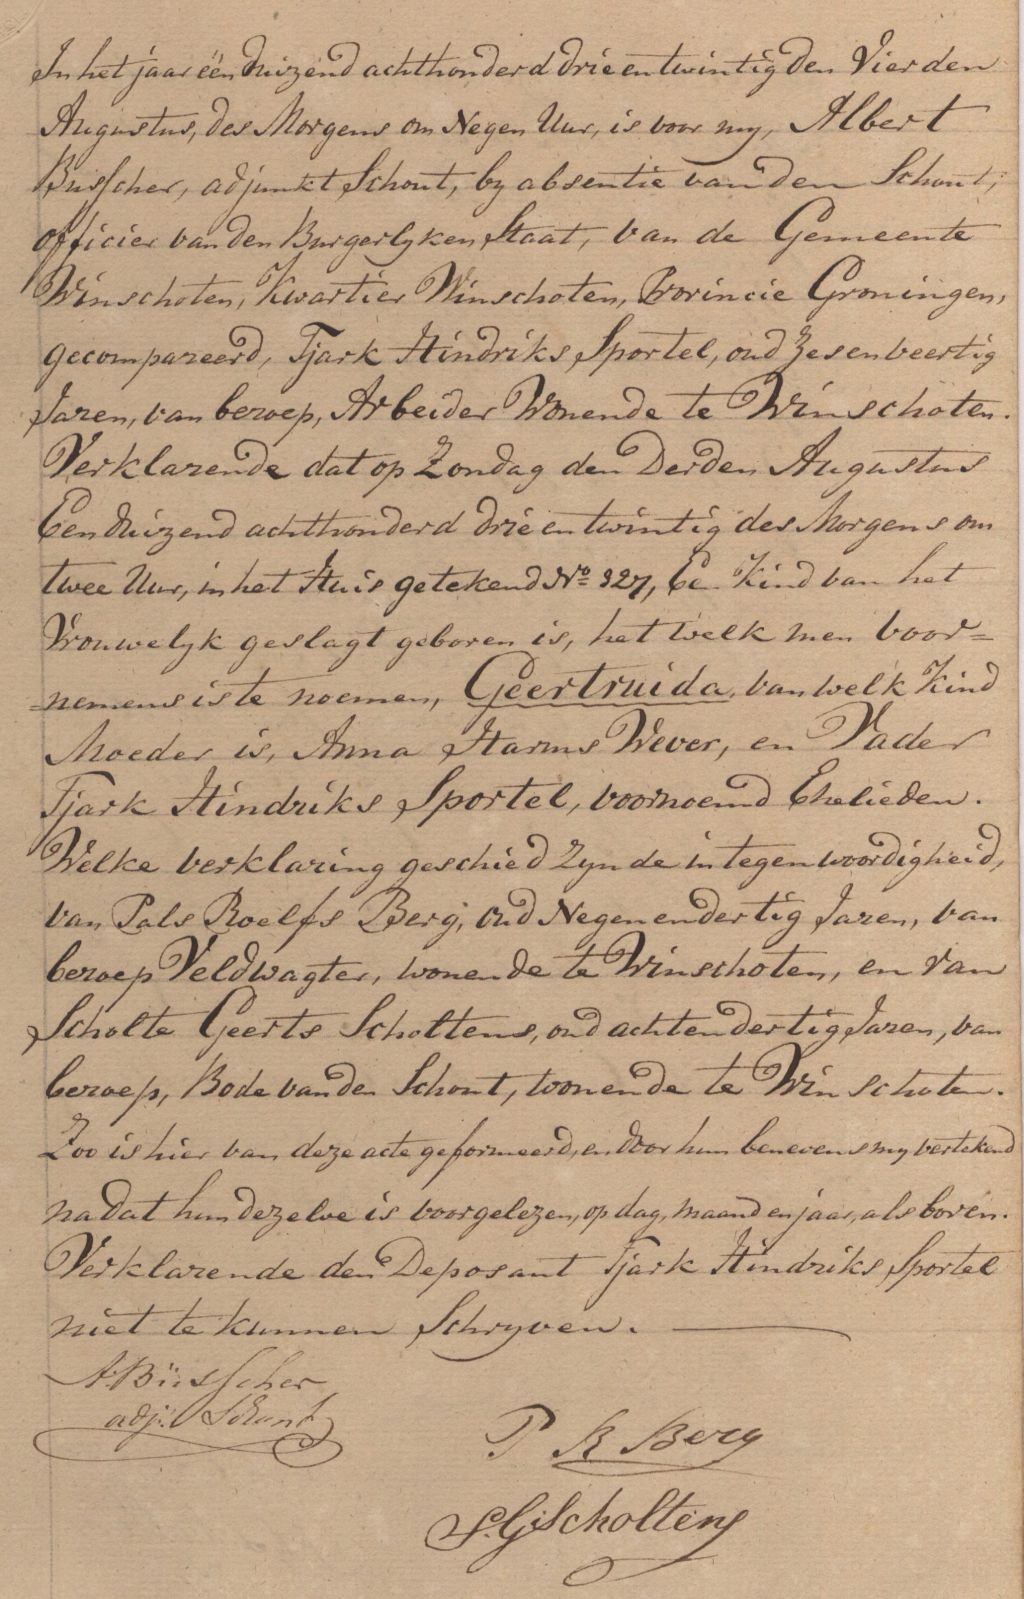 In het jaar één duizend achthonderd drie en twintig den Vierden
Augustus, des Morgens om Negen Uur, is voor my, Albert
Busscher, adjunkt Schout, by absentie van den Schout,
officier van den Burgerlyken Staat, van de Gemeente
Winschoten, Kwartier Winschoten, Provincie Groningen,
gecompareerd, Tjark Hindriks Sportel, oud Zes en veertig
Jaren, van beroep, Arbeider Wonende te Winschoten.
Verklarende dat op Zondag den Derden Augustus
Een duizend achthonderd drie en twintig des Morgens om
twee Uur, in het Huis getekend No 327, Een Kind van het
Vrouwelyk geslagt geboren is, het welk men voor=
=nemens is te noemen, Geertruida, van welk Kind
Moeder is, Anna Harms Wever, en Vader
Tjark Hindriks Sportel, voornoemd Ehelieden.
Welke verklaring geschied Zynde in tegenwoordigheid,
van Pals Roelfs Berg, oud Negen en dertig Jaren, van
beroep Veldwagter, wonende te Winschoten, en van
Scholte Geerts Scholtens, oud acht en dertig Jaren, van
beroep, Bode van den Schout, wonende te Winschoten.
Zoo is hier van deze acte geformeerd, en door hun benevens my vertekend
na dat hun dezelve is voorgelezen, op dag, maand en jaar, als boven.
Verklarende den Deposant Tjark Hindriks Sportel
niet te kunnen Schryven.
A. Busscher
adj: Schout
P R Berg
S. G. Scholtens